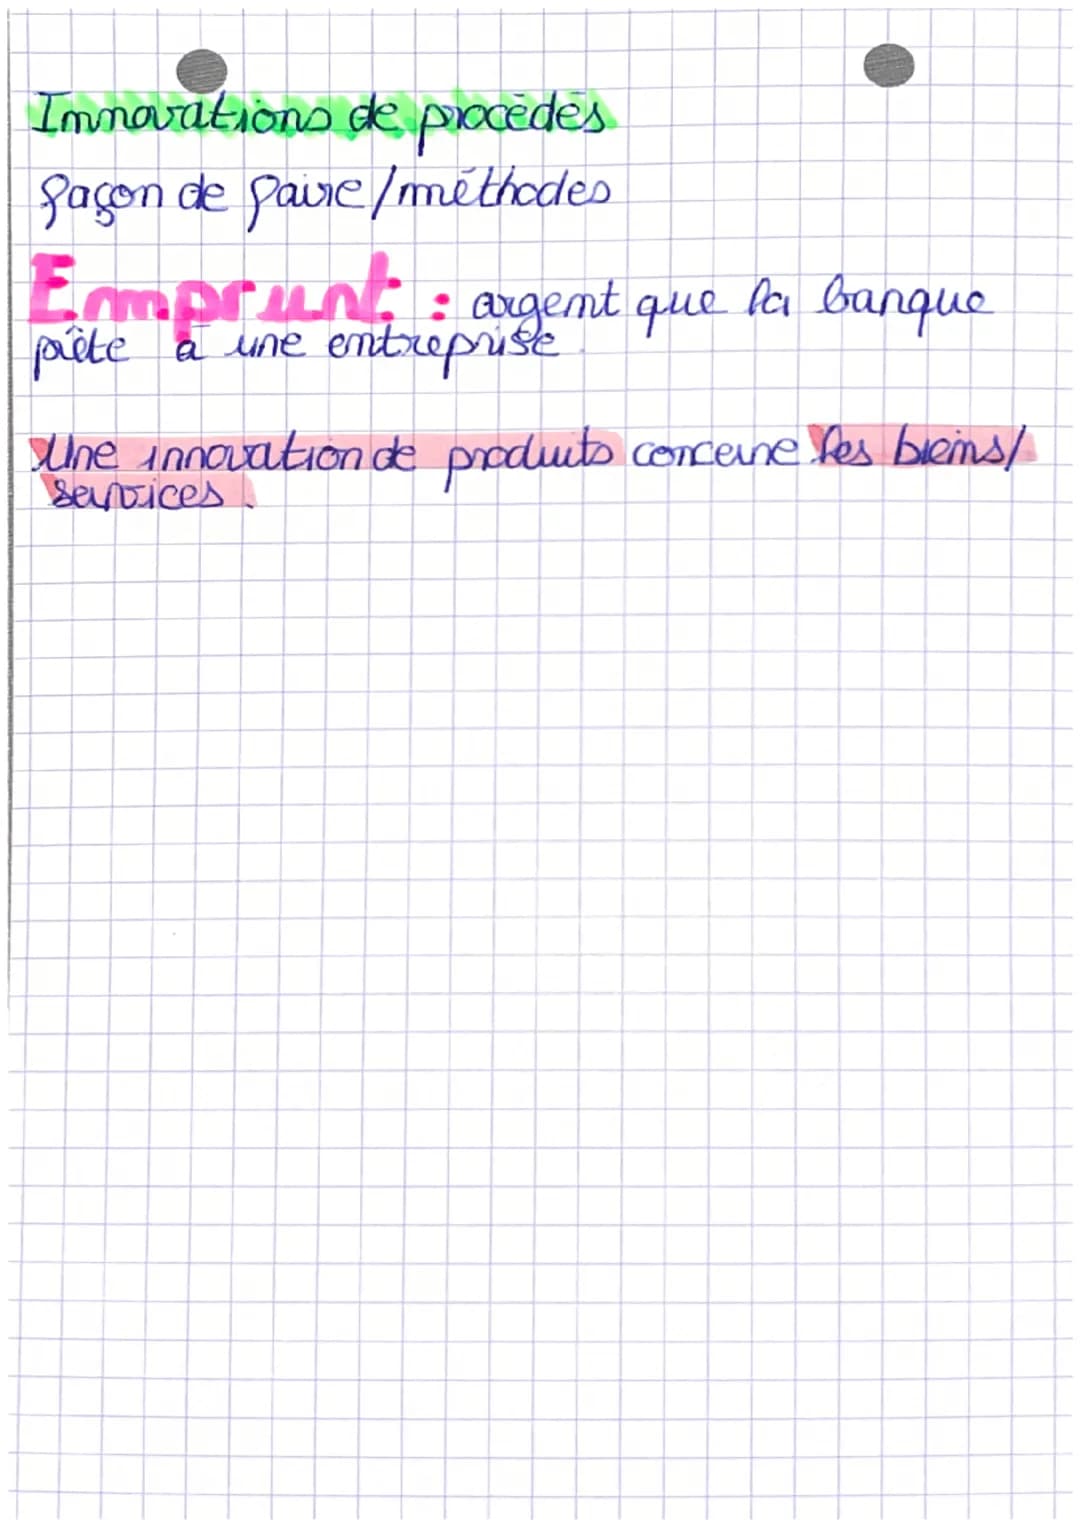 Innovations de procédés
façon de faire/méthodes
Emprunt : argent que la banque
prête à une entreprise.
Une innovation de produits concerne les biens/
services.